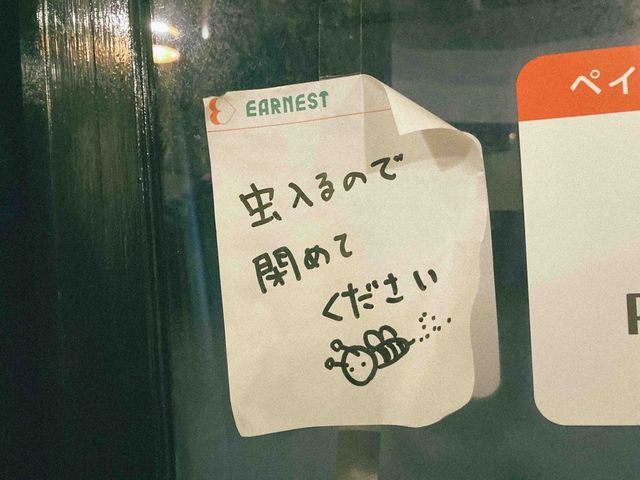 EARNEST
虫入るので
閉めて
ください
ペイ